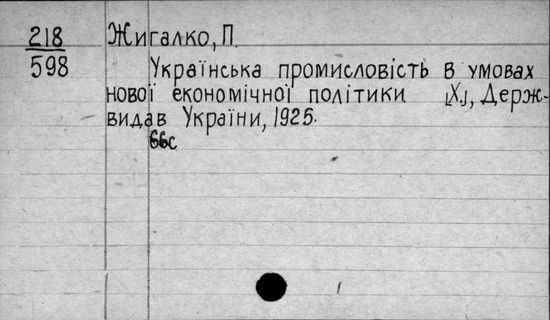 218
598
Жигалко, П.
Українська промисловість в умовах
нової економічної політики [Х.], Держ-
видав України, 1925.
66с